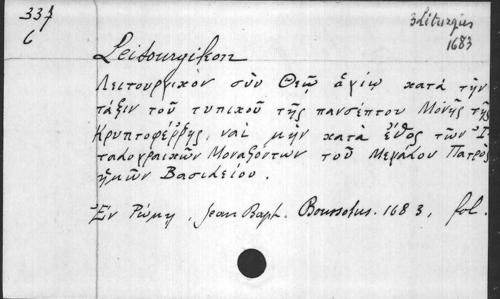 337
C
3Liturgies
1683
Leitourgikon
Λειτουργικὸν σὺν Θεῷ ἁγίῳ κατὰ τὴν
τάξιν τοῦ τυπικοῦ τῆς πανσέπτου Μόνῆς τῆς
Κρυπτοφέρρης, ναὶ μὴν κατὰ ἔθος τῶν Ἰ-
ταλογραικῶν Μοναζόντων τοῦ Μεγάλου Πατρὸς
ἡμῶν Βασιλείου.
Ἐν Ῥώμῃ, Jean Bapt. Boussotus. 1683, fol.